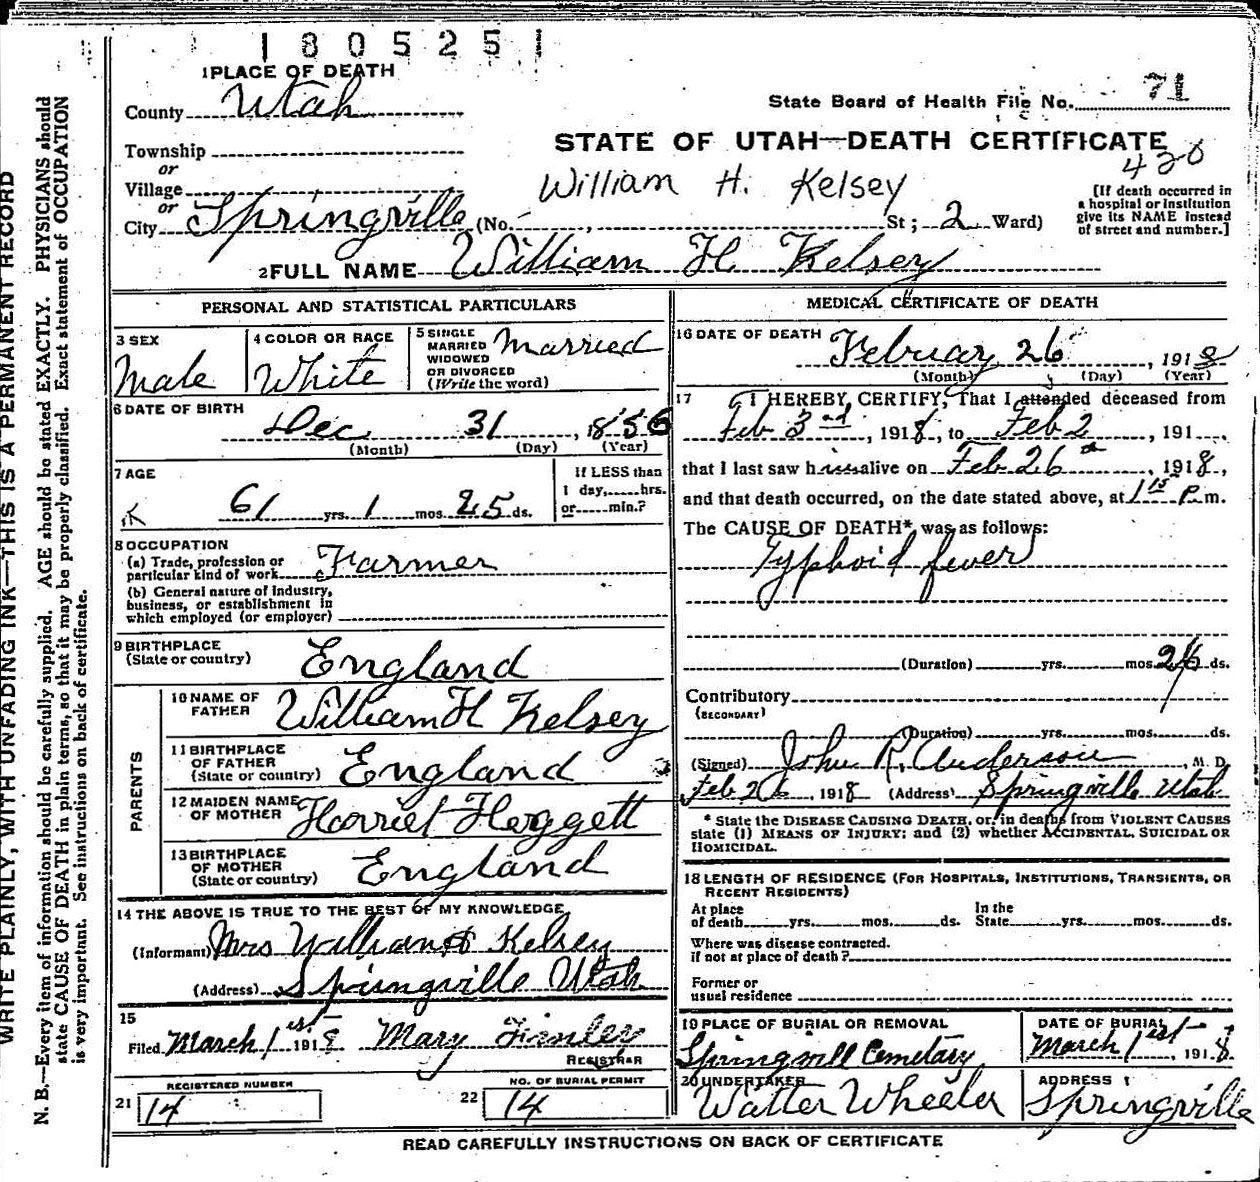 1 8 0 5 2 5 1
1 PLACE OF DEATH
County Utah
State Board of Health File No. 71
Township
or
Village
or
City Springville (No. , St; 2 Ward)
STATE OF UTAH—DEATH CERTIFICATE
430
William H. Kelsey
[If death occurred in
a hospital or institution
give its NAME instead
of street and number.]
2 FULL NAME William H Kelsey
PERSONAL AND STATISTICAL PARTICULARS
3 SEX
Male
4 COLOR OR RACE
White
5 SINGLE
MARRIED
WIDOWED
OR DIVORCED
(Write the word)
Married
6 DATE OF BIRTH
Dec 31, 1856
(Month) (Day) (Year)
7 AGE
61 yrs. 1 mos. 25 ds.
If LESS than
1 day, hrs.
or min.?
8 OCCUPATION
(a) Trade, profession or
particular kind of work Farmer
(b) General nature of industry,
business, or establishment in
which employed (or employer)
9 BIRTHPLACE
(State or country) England
PARENTS
10 NAME OF
FATHER William H Kelsey
11 BIRTHPLACE
OF FATHER
(State or country) England
12 MAIDEN NAME
OF MOTHER Harriet Hoggett
13 BIRTHPLACE
OF MOTHER
(State or country) England
14 THE ABOVE IS TRUE TO THE BEST OF MY KNOWLEDGE
(Informant) Mrs William H Kelsey
(Address) Springville Utah
15
Filed March 1st 1918 Mary
REGISTRAR
REGISTERED NUMBER
21 14
NO. OF BURIAL PERMIT
22 14
MEDICAL CERTIFICATE OF DEATH
16 DATE OF DEATH February 26, 1918
(Month) (Day) (Year)
17 I HEREBY CERTIFY, That I attended deceased from
Feb 3rd, 1918, to Feb 2, 191
that I last saw him alive on Feb 26th, 1918,
and that death occurred, on the date stated above, at 1 15 P m.
The CAUSE OF DEATH* was as follows:
Typhoid fever
(Duration) yrs. mos. 26 ds.
Contributory
(SECONDARY)
(Duration) yrs. mos. ds.
(Signed) John R. Anderson, M. D.
Feb 26, 1918 (Address) Springville Utah
* State the DISEASE CAUSING DEATH, or, in deaths from VIOLENT CAUSES
state (1) MEANS OF INJURY; and (2) whether ACCIDENTAL, SUICIDAL OR
HOMICIDAL.
18 LENGTH OF RESIDENCE (FOR HOSPITALS, INSTITUTIONS, TRANSIENTS, OR
RECENT RESIDENTS)
At place
of death yrs. mos. ds.
In the
State yrs. mos. ds.
Where was disease contracted.
if not at place of death?
Former or
usual residence
19 PLACE OF BURIAL OR REMOVAL
Springvill Cemetary
DATE OF BURIAL
March 1st, 1918
20 UNDERTAKER
Walter Wheeler
ADDRESS
Springville
READ CAREFULLY INSTRUCTIONS ON BACK OF CERTIFICATE
WRITE PLAINLY, WITH UNFADING INK—THIS IS A PERMANENT RECORD
N. B.—Every item of information should be carefully supplied. AGE should be stated EXACTLY. PHYSICIANS should
state CAUSE OF DEATH in plain terms, so that it may be properly classified. Exact statement of OCCUPATION
is very important. See instructions on back of certificate.